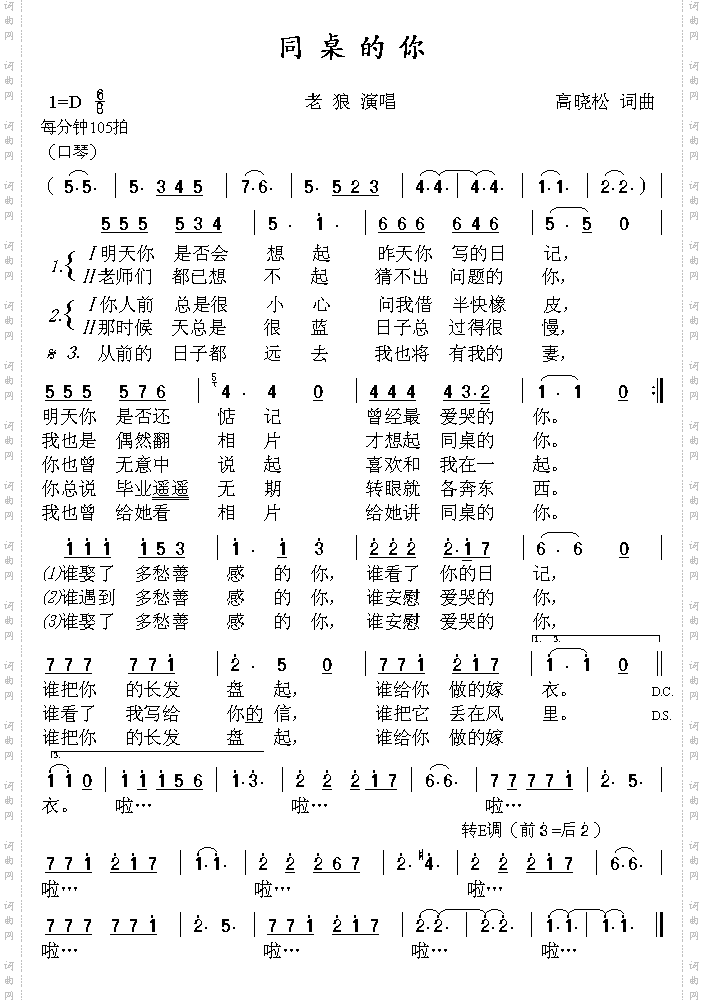 同桌的你
1=D 6/8 老狼 演唱 高晓松 词曲
每分钟105拍
（口琴）
( 5· 5· | 5· 3 4 5 | 7· 6· | 5· 5 2 3 | 4· 4· | 4· 4· | 1· 1· | 2· 2· )
5 5 5 5 3 4 | 5 · 1 · | 6 6 6 6 4 6 | 5 · 5 0 |
1. I 明天你 是否会 想 起 昨天你 写的日 记，
II 老师们 都已想 不 起 猜不出 问题的 你，
2. I 你人前 总是很 小 心 问我借 半块橡 皮，
II 那时候 天总是 很 蓝 日子总 过得很 慢，
3. 从前的 日子都 远 去 我也将 有我的 妻，
5 5 5 5 7 6 | 5 4 · 4 0 | 4 4 4 4 3·2 | 1 · 1 0 :||
明天你 是否还 惦 记 曾经最 爱哭的 你。
我也是 偶然翻 相 片 才想起 同桌的 你。
你也曾 无意中 说 起 喜欢和 我在一 起。
你总说 毕业遥遥 无 期 转眼就 各奔东 西。
我也曾 给她看 相 片 给她讲 同桌的 你。
1 1 1 1 5 3 | 1 · 1 3 | 2 2 2 2·1 7 | 6 · 6 0 |
(1)谁娶了 多愁善 感 的 你， 谁看了 你的日 记，
(2)谁遇到 多愁善 感 的 你， 谁安慰 爱哭的 你，
(3)谁娶了 多愁善 感 的 你， 谁安慰 爱哭的 你，
7 7 7 7 7 1 | 2 · 5 0 | 7 7 7 2 1 7 | 1 · 1 0 ||
谁把你 的长发 盘 起， 谁给你 做的嫁 衣。 D.C.
谁看了 我写给 你的 信， 谁把它 丢在风 里。 D.S.
谁把你 的长发 盘 起， 谁给你 做的嫁
3.
1 1 0 | 1 1 1 5 6 | 1· 3· | 2 2 2 1 7 | 6· 6· | 7 7 7 1 7 | 2· 5· |
衣。 啦… 啦… 啦…
转E调（前3=后2）
7 7 1 2 1 7 | 1· 1· | 2 2 2 6 7 | 2· #4· | 2 2 2 1 7 | 6· 6· |
啦… 啦… 啦…
7 7 7 7 7 1 | 2· 5· | 7 7 7 2 1 7 | 2· 2· | 2· 2· | 1· 1· | 1· 1· ||
啦… 啦… 啦… 啦…
词曲网